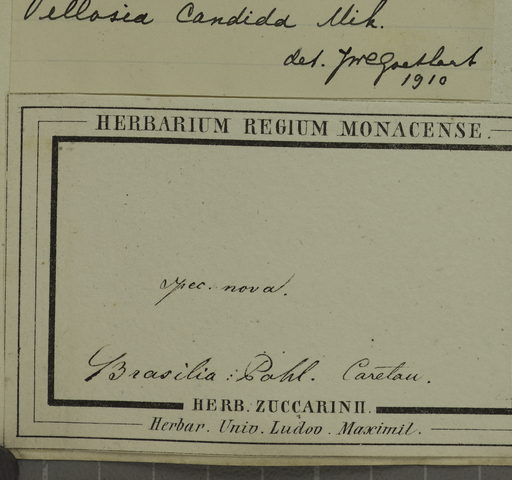 Vellosia candida Mik.
det. JWCGoethart
1910
HERBARIUM REGIUM MONACENSE.
spec. nova.
Brasilia: Pohl. Caretau.
HERB. ZUCCARINII.
Herbar. Univ. Ludov. Maximil.